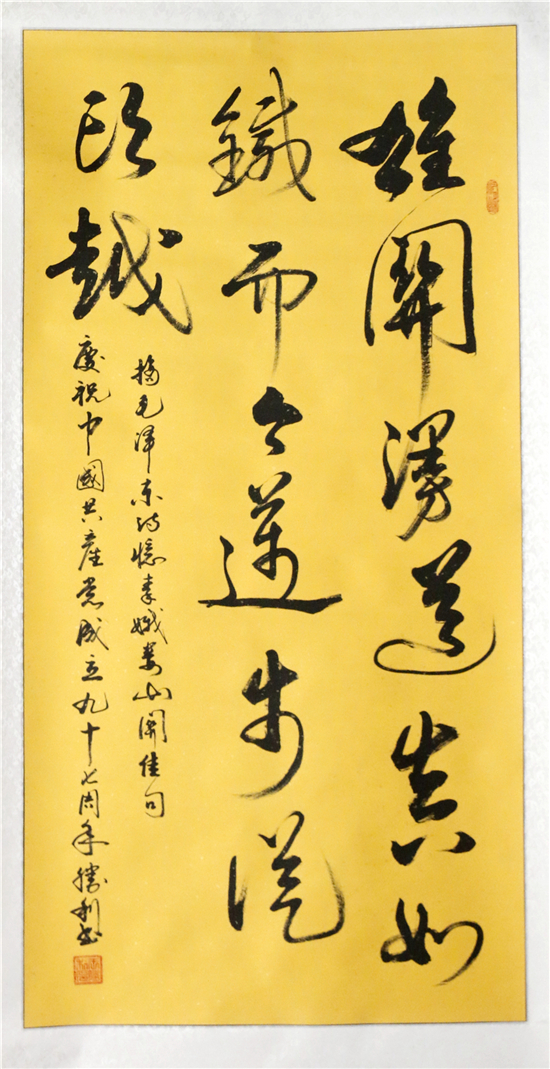 雄關漫道真如
鐵而今邁步從
頭越
摘毛澤東詩憶秦娥婁山關佳句
慶祝中國共產党成立九十七周年勝利書